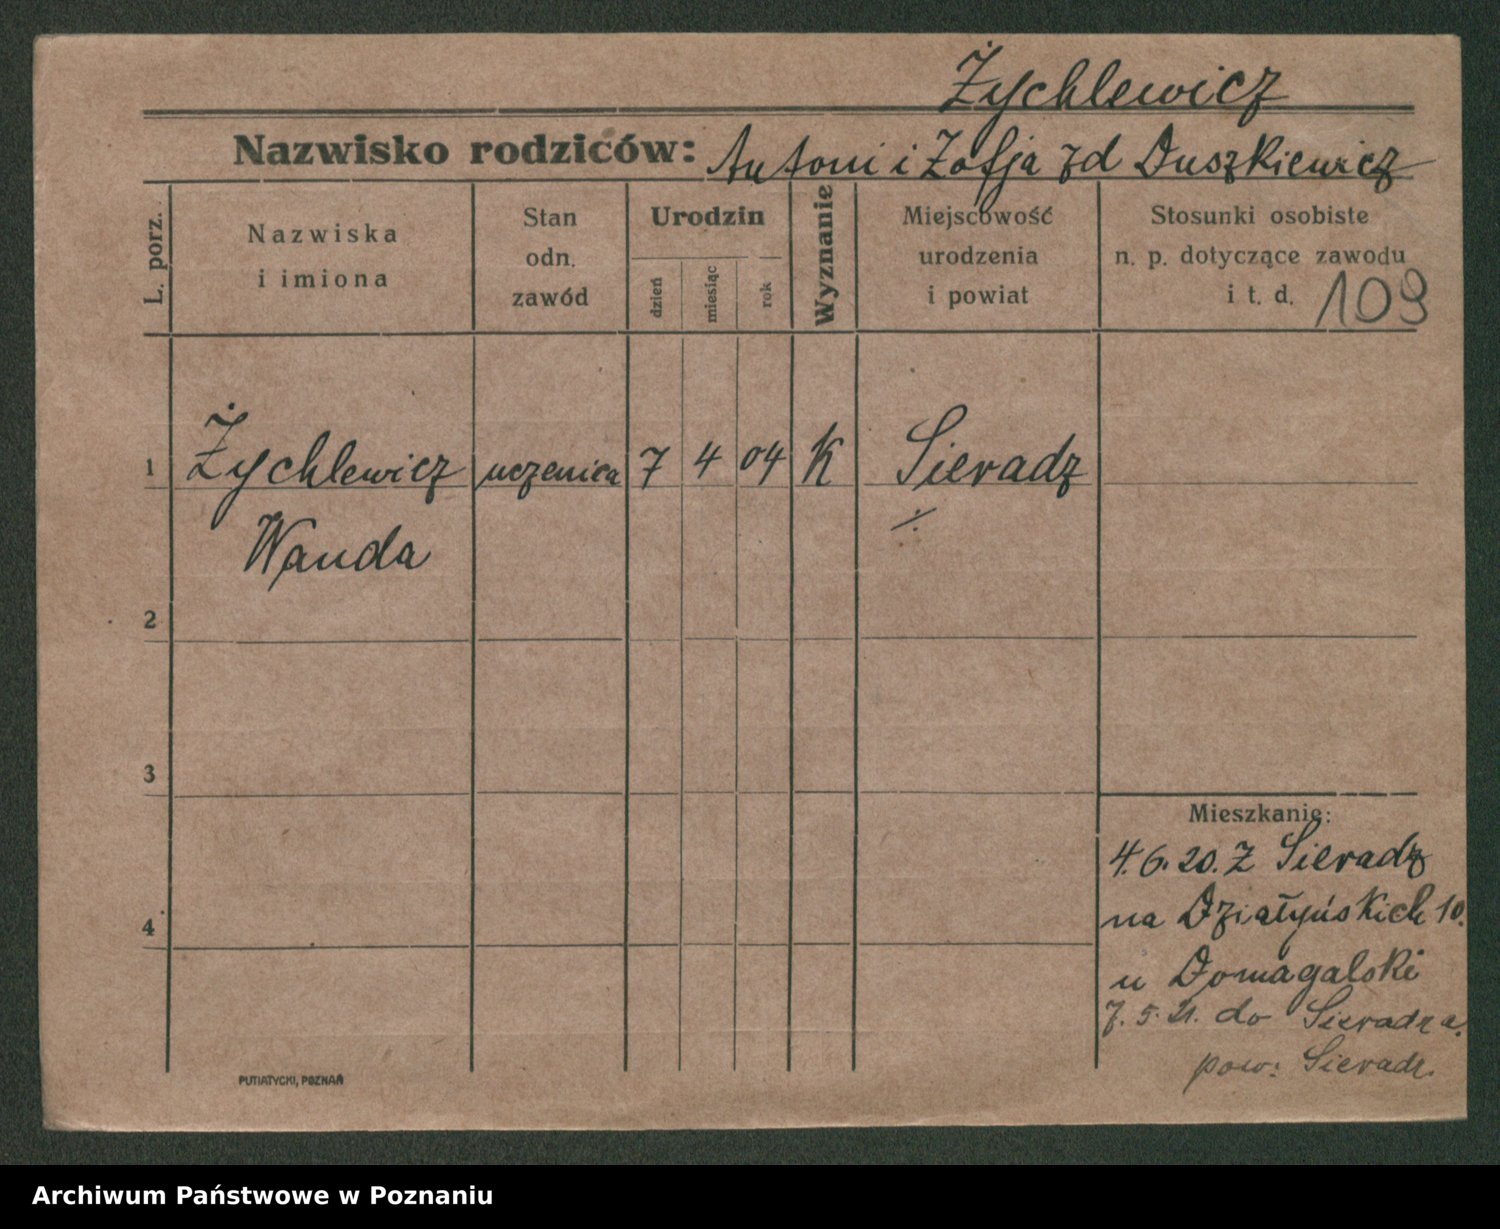 Żychlewicz
Nazwisko rodziców: Antoni i Zofja zd Duszkiewicz
L. porz.
Nazwiska
i imiona
Stan
odn.
zawód
Urodzin
dzień
miesiąc
rok
Wyznanie
Miejscowość
urodzenia
i powiat
Stosunki osobiste
n. p. dotyczące zawodu
i t. d.
109
1 Żychlewicz uczenica 7 4 04 K Sieradz
Wanda
2
3
4
Mieszkanie:
4.6.20. Z Sieradz
na Działyńskich 10.
u Domagalski
7.5.21. do Sieradza.
pow: Sieradz.
PUTIATYCKI, POZNAŃ
Archiwum Państwowe w Poznaniu